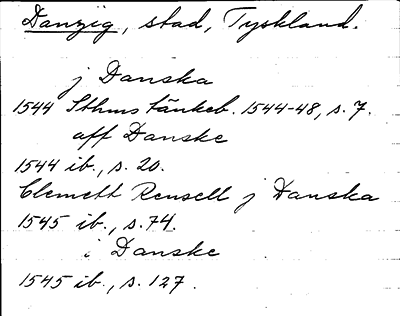 Danzig, stad, Tyskland.
j Danska
1544 Sthms tänkeb. 1544-48, s. 7.
aff Danske
1544 ib., s. 20.
Clemett Rensell j Danska
1545 ib., s. 74.
i Danske
1545 ib., s. 127.